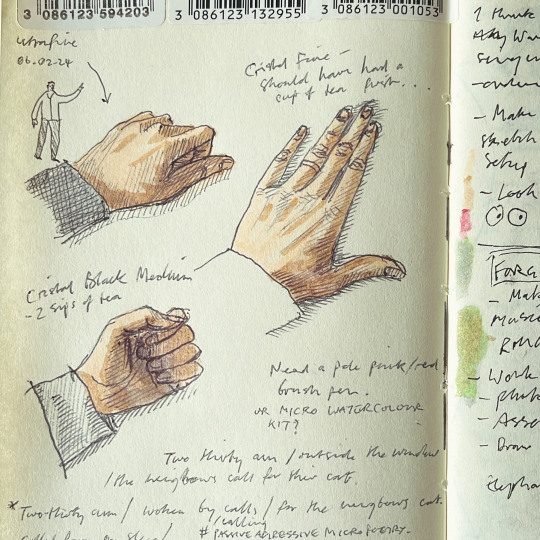 3 086123 594203
3 086123 132955
3 086123 001053
ultrafine
06.02.24
Cristal Fine -
should have had a
cup of tea first...
Cristal Black Medium
- 2 sips of tea
Need a pale pink/red
brush pen.
OR MICRO WATERCOLOUR
KIT?
Two thirty am / outside the window
/ the neigbours call for their cat.
* Two-thirty am / woken by calls / for the neigbours cat.
/calling
# PASSIVE AGRESSIVE MICROPOETRY.
I think
- Make
sketch
setup
- Look
- Mak
- Work
- Asse
- Draw
elepha